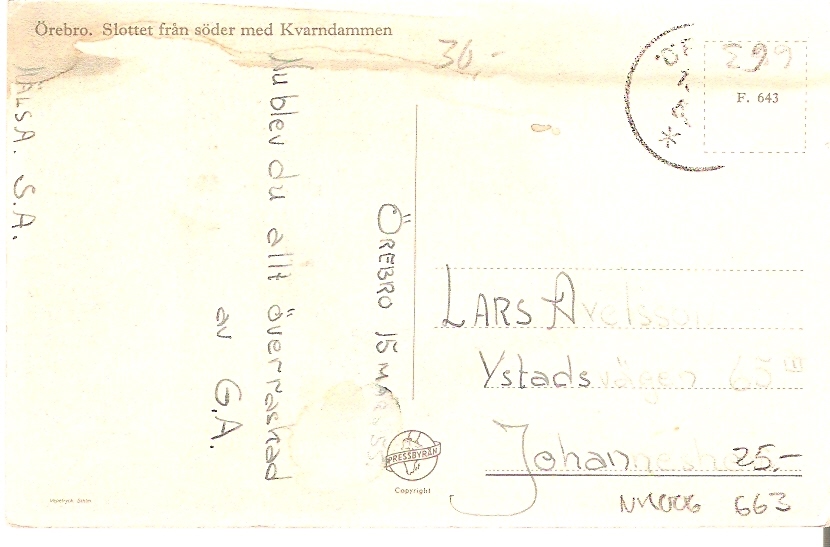 Örebro. Slottet från söder med Kvarndammen
30,-
F. 643
ÖREBRO 15 MARS 55
Nu blev du allt överraskad
av G.A.
HÄLSA. S.A.
LARS Axelsson
Ystadsvägen 65 III
Johanneshov
25.-
663
PRESSBYRÅN
Copyright